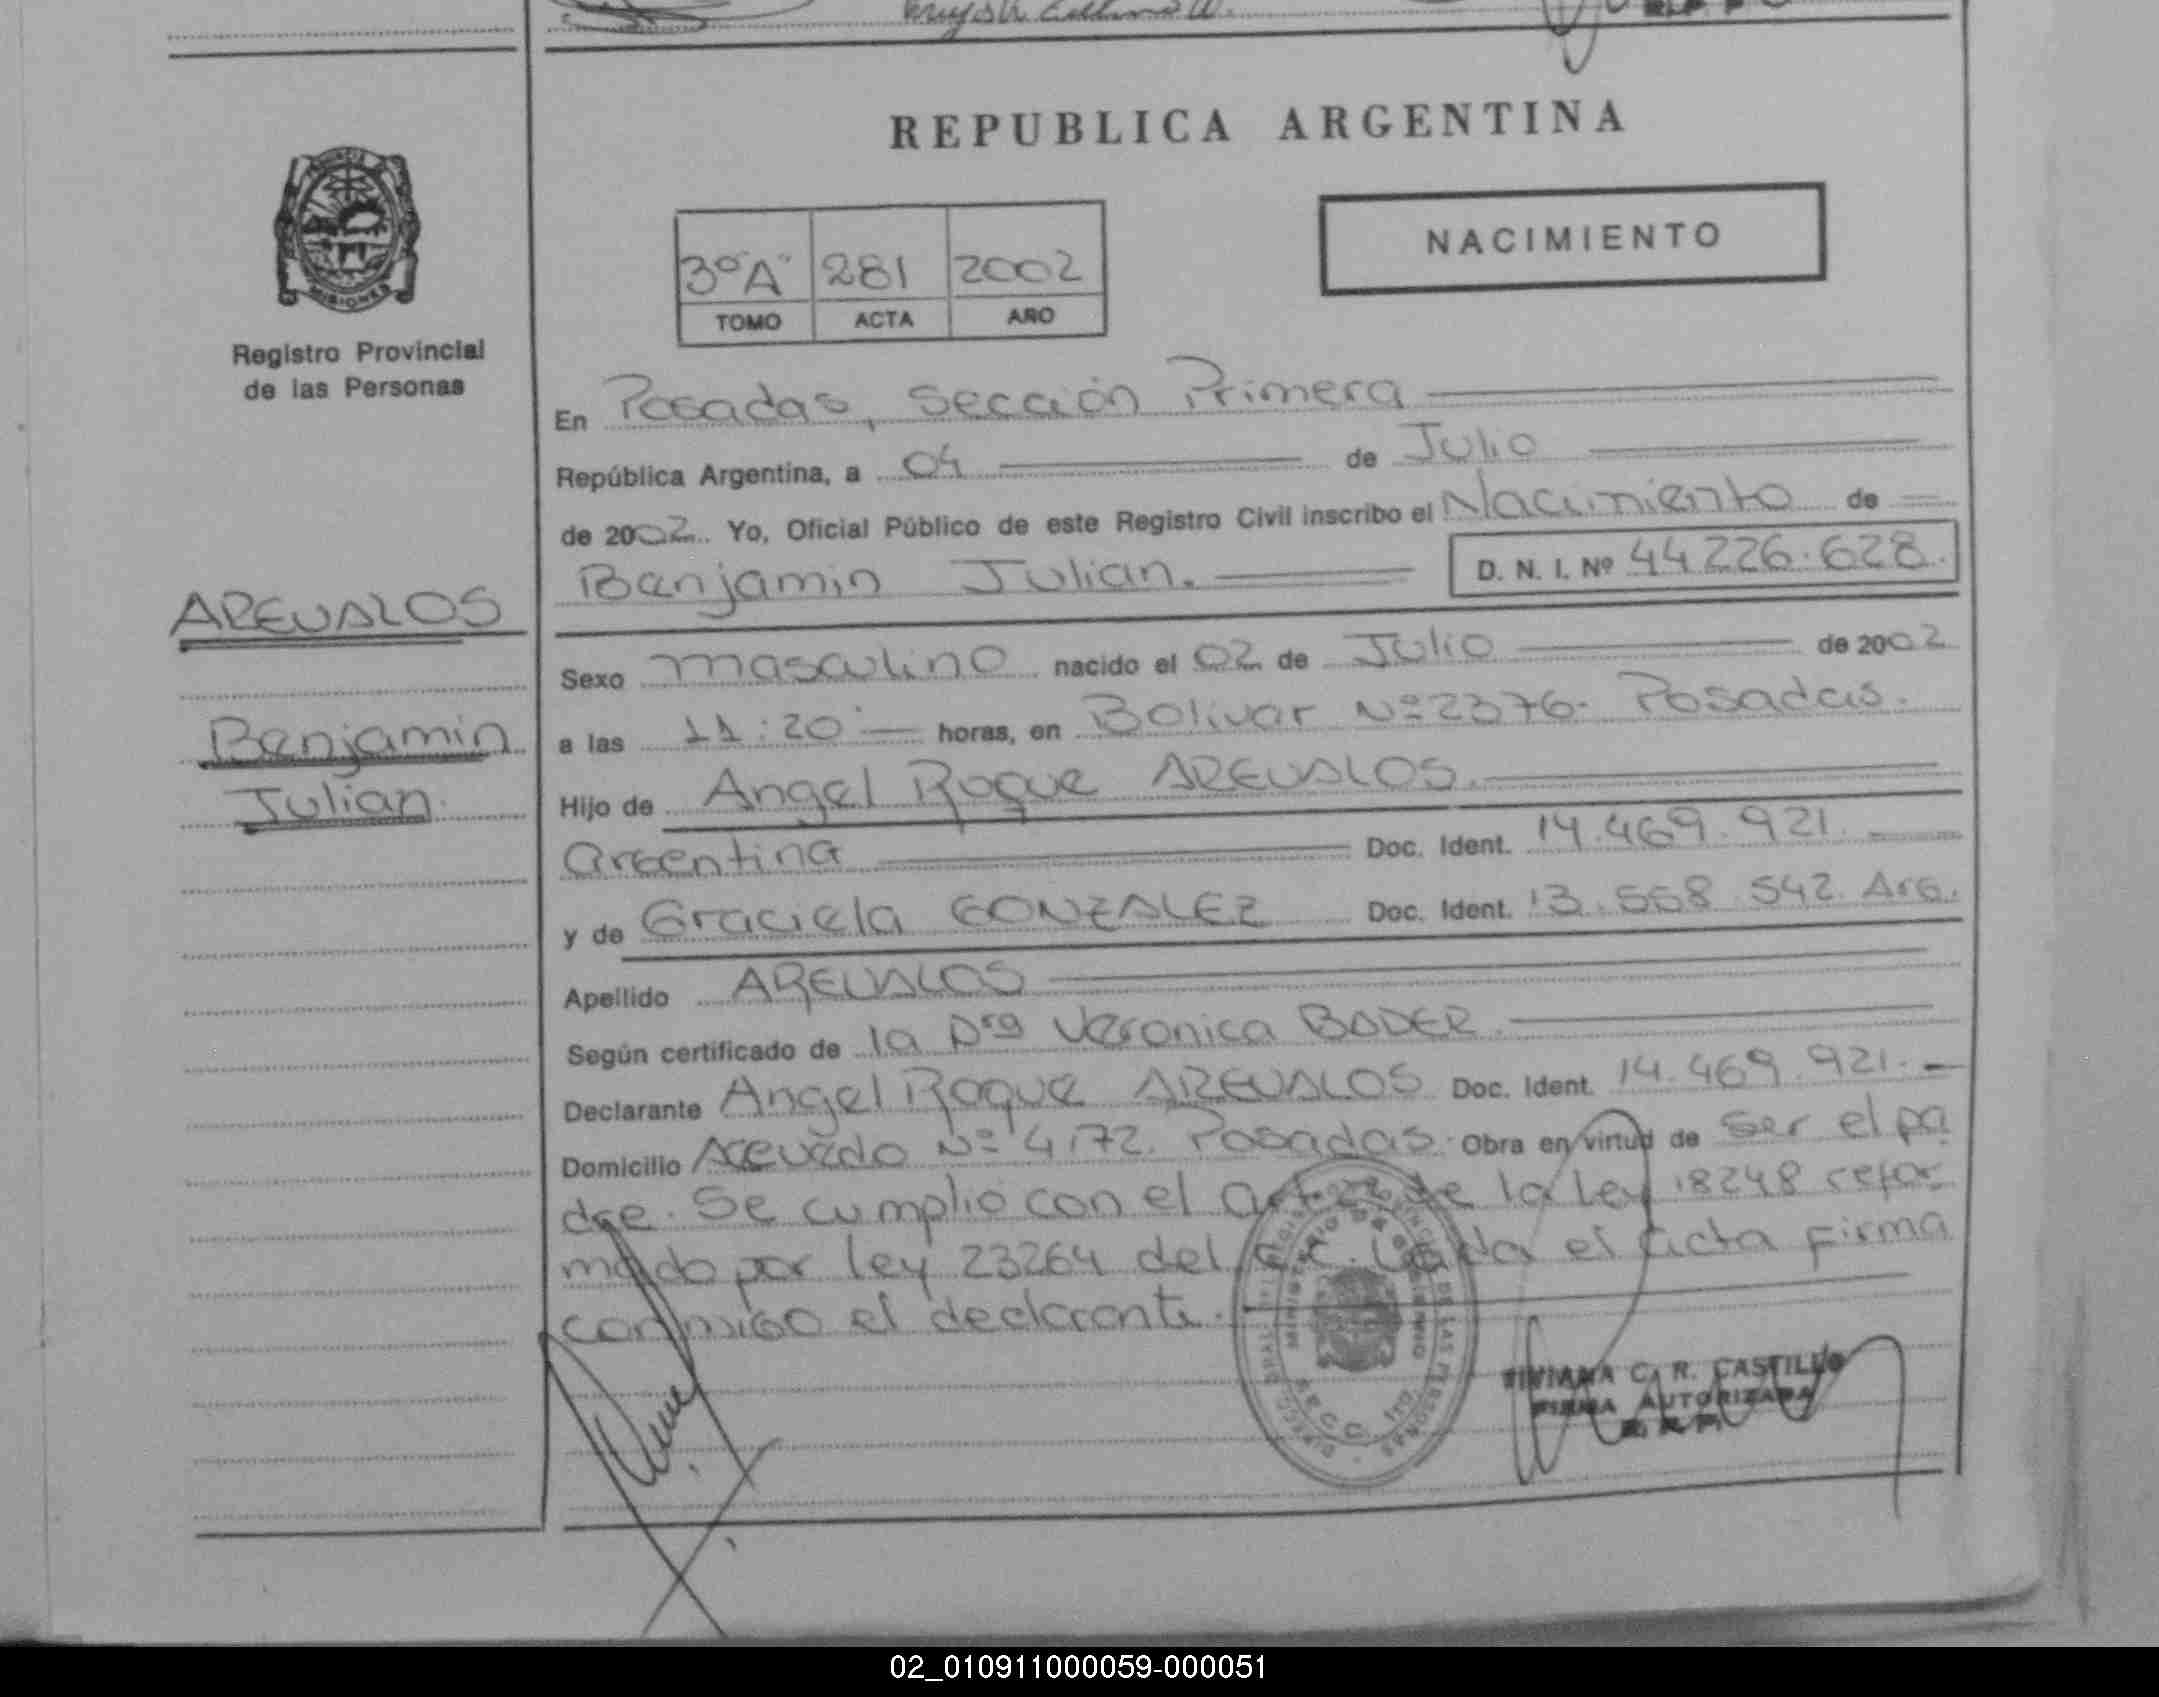 REPUBLICA ARGENTINA
NACIMIENTO
3º "A" 281 2002
TOMO ACTA AÑO
MISIONES
Registro Provincial
de las Personas
En Posadas, Sección Primera
República Argentina, a 04 de Julio
de 2002. Yo, Oficial Público de este Registro Civil inscribo el Nacimiento de
Benjamin Julian. D. N. I. Nº 44226.628.
AREVALOS
Benjamin
Julian.
Sexo masculino nacido el 02 de Julio de 2002
a las 11:20 horas, en Bolivar Nº 2376. Posadas.
Hijo de Angel Roque AREVALOS.
argentina Doc. Ident. 14.469.921.
y de Graciela GONZALEZ Doc. Ident. 13.558.542. Arg.
Apellido AREVALOS
Según certificado de la Dra Veronica BADER.
Declarante Angel Roque AREVALOS Doc. Ident. 14.469.921.
Domicilio Acevedo Nº 4172. Posadas. Obra en virtud de ser el pa
dre. Se cumplió con el de la Ley 18248 refor
mado por ley 23264 del C.C. Leida el acta firma
conmigo el declarante.
VIVIANA C. R. CASTILLO
FIRMA AUTORIZADA
02_010911000059-000051